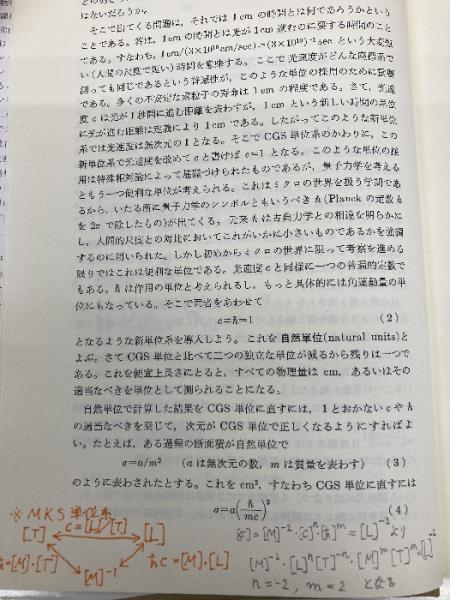 はないだろうか.
そこで出てくる問題に, それでは 1 cm の時間とは何であろうかという
ことである. 答は, 1 cm の時間とは光が 1 cm 進むのに要する時間のこと
である. すなわち, 1 cm/(3×10¹⁰cm/sec)=(3×10¹⁰)⁻¹ sec という大変短
い(人間の尺度で短い)時間を意味する. ここで光速度がどんな座標系で
測っても同じであるという普遍性が, このような単位の採用のために重要
である. 多くの不安定な素粒子の寿命は 1 cm の程度である. さて, 光速
度 c は光が 1 秒間に進む距離を表わすが, 1 cm という新しい時間の単位
に光が進む距離は定義により 1 cm である. したがってこのような新単位
系では光速度は無次元の 1 となる. そこで CGS 単位系のかわりに, この
新単位系で光速度を改めて c と書けば c=1 となる. このような単位の採
用は特殊相対論によって基礎づけられたものであるが, 量子力学を考える
ともう一つ便利な単位が考えられる. これはミクロの世界を扱う学問であ
るから, いたる所に量子力学のシンボルともいうべき ℏ (Planck の定数 h
を 2π で除したもの)が出てくる. 元来 ℏ は古典力学との相違を明らかに
し, 人間的尺度との対比においてこれがいかに小さいものであるかを強調
するのに用いられた. しかし初めからミクロの世界に限って考察を進める
限りではこれは便利な単位である. 光速度 c と同様に一つの普遍的定数で
もある. ℏ は作用の単位と考えられるし, もっと具体的には角運動量の単
位にもなっている. そこで両者をあわせて
c=ℏ=1 (2)
となるような新単位系を導入しよう. これを自然単位(natural units)と
よぶ. さて CGS 単位と比べて二つの独立な単位が減るから残りは一つで
ある. これを便宜上長さにとると, すべての物理量は cm, あるいはその
適当なべきを単位として測られることになる.
自然単位で計算した結果を CGS 単位に直すには, 1 とおかない c や ℏ
の適当なべきを乗じて, 次元が CGS 単位で正しくなるようにすればよ
い. たとえば, ある過程の断面積が自然単位で
σ=a/m² (a は無次元の数, m は質量を表わす) (3)
のように表わされたとする. これを cm², すなわち CGS 単位に直すには
σ=a(ℏ/mc)² (4)
※ MKS 単位系
[T] c=[L]/[T] [L]
ℏ=[M]·[T] [M]⁻¹ ℏc=[M]·[L]
[σ]=[M]⁻²·[c]ⁿ[ℏ]ᵐ=[L]⁻²より
[M]⁻²·[L]ⁿ[T]⁻ⁿ·[M]ᵐ[T]ᵐ[L]⁻²
n=-2, m=2 となる